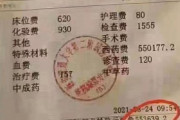 床位费 620 护理费 80
化验费 930 检查费 1555
其他 手术费
特殊材料 西药费 550177.2
血费 诊查费 120
治疗费 157 中草药
中成药
2021-04-24 09:54
553639.2